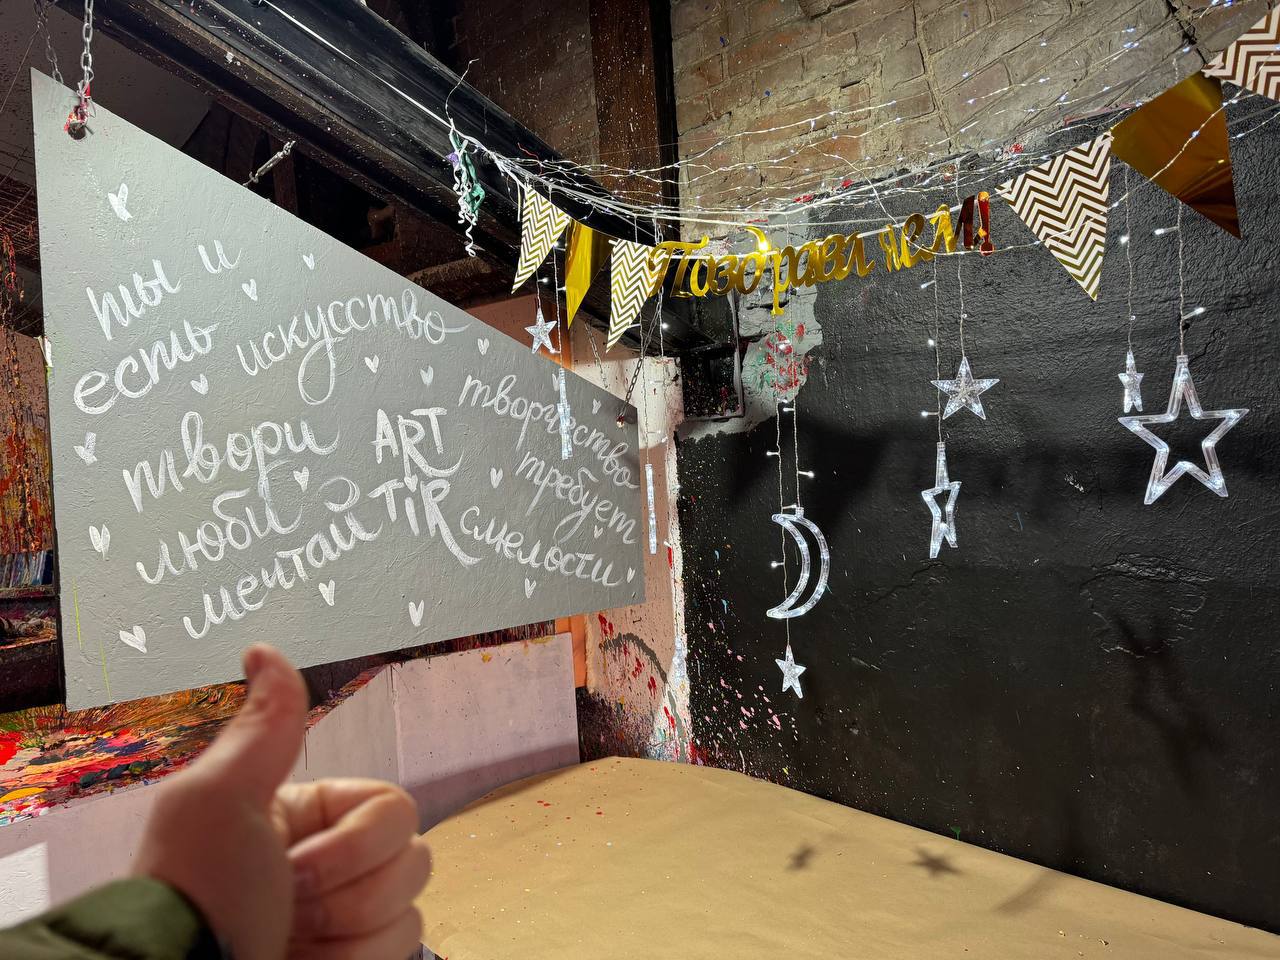 ты и
есть искусство
твори
люби
мечтай
ART
TiR
творчество
требует
смелости
Поздравляем!